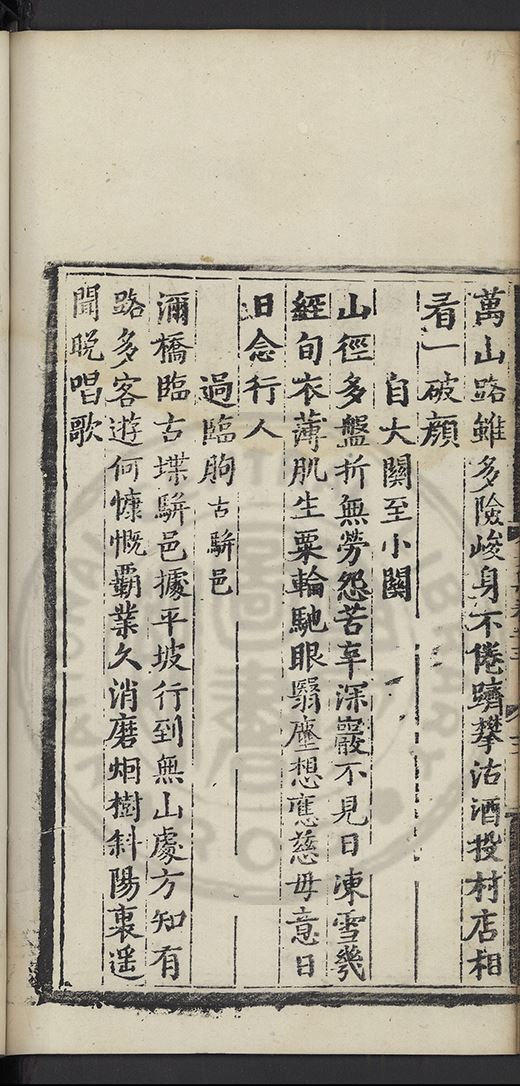 萬山路雖多險峻身不倦躋攀沽酒投村店相
看一破顏
自大關至小關
山徑多盤折無勞怨苦辛深霾不見日凍雪幾
經旬衣薄肌生粟輪馳眼翳塵想應慈母意日
日念行人
過臨朐古駢邑
瀰橋臨古堞駢邑據平坡行到無山處方知有
路多客遊何慷慨覇業久消磨烟樹斜陽裏遥
聞晚唱歌